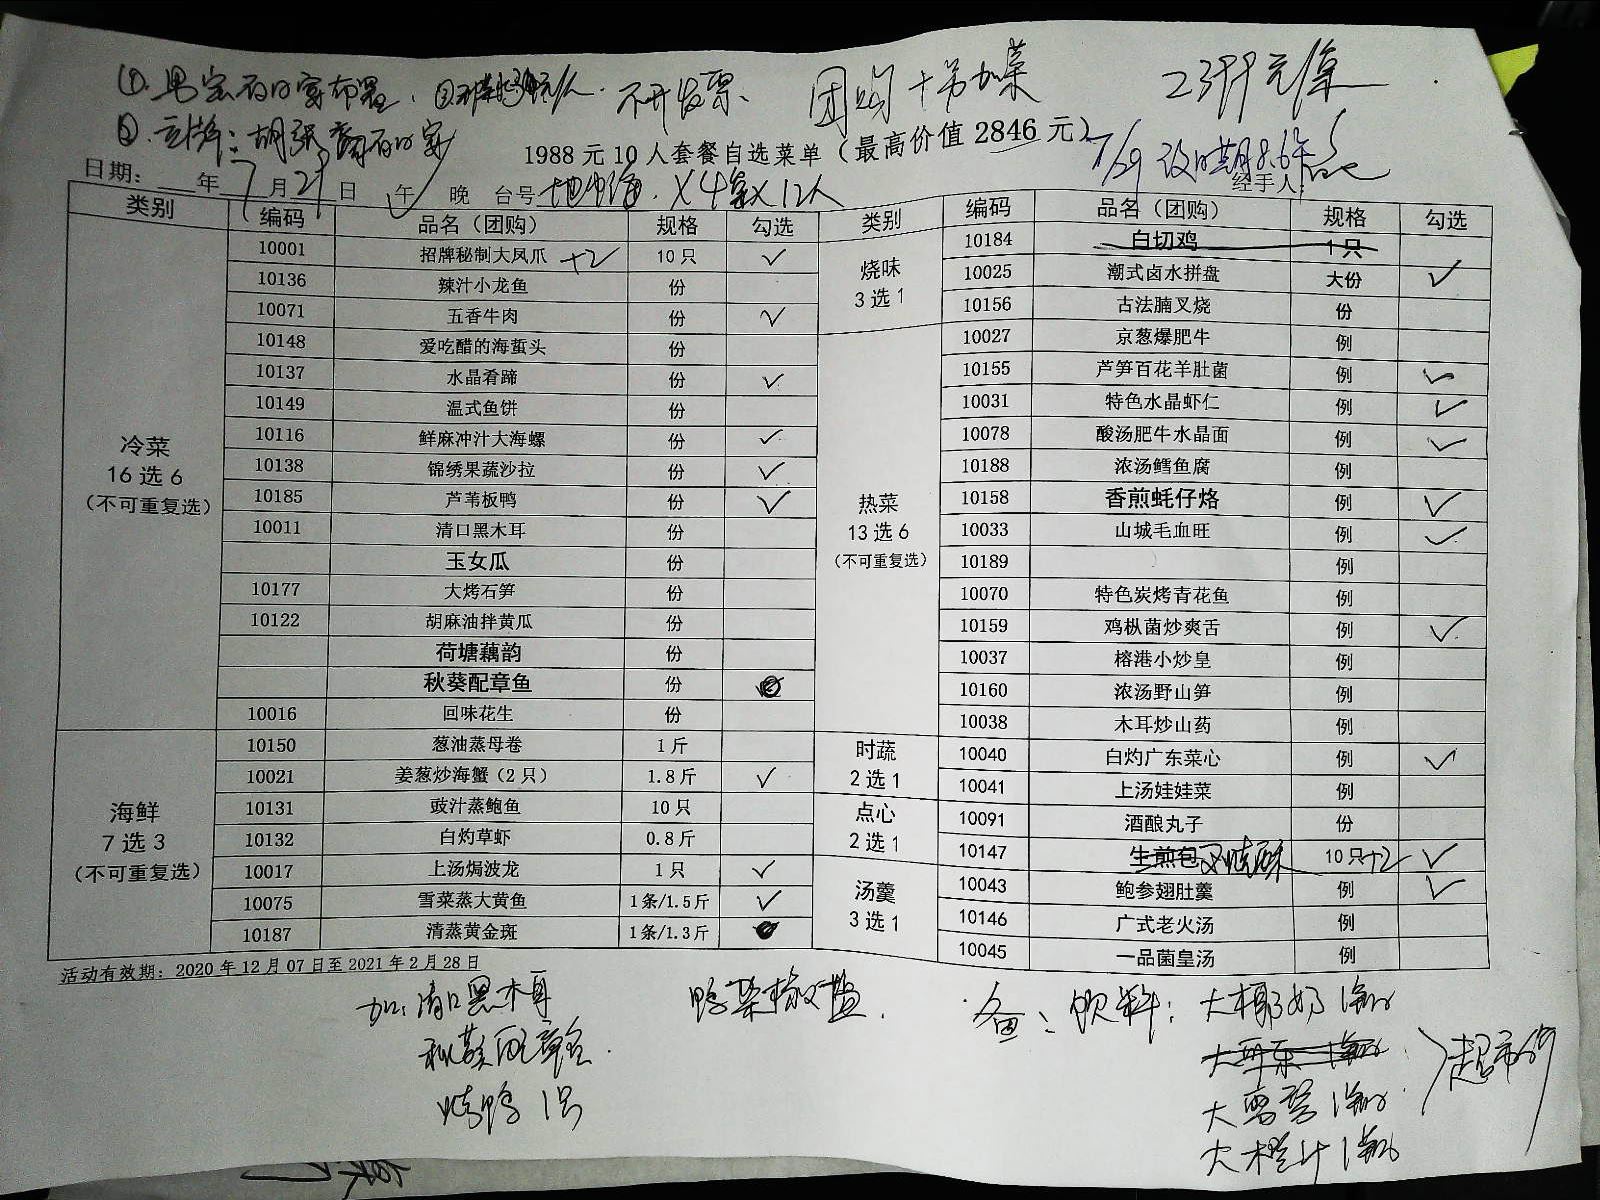 不开发票、 团购+另加菜 2399元/桌
1988 元 10 人套餐自选菜单（最高价值 2846 元）
7/29 改日期8.6
日期： 年 7 月 29 日 午 晚 台号 ×4桌×12人 经手人：
类别 编码 品名（团购） 规格 勾选
冷菜
16 选 6
（不可重复选）
10001 招牌秘制大凤爪 +2 10 只 ✓
10136 辣汁小龙鱼 份
10071 五香牛肉 份 ✓
10148 爱吃醋的海蜇头 份
10137 水晶肴蹄 份 ✓
10149 温式鱼饼 份
10116 鲜麻冲汁大海螺 份 ✓
10138 锦绣果蔬沙拉 份 ✓
10185 芦苇板鸭 份 ✓
10011 清口黑木耳 份
玉女瓜 份
10177 大烤石笋 份
10122 胡麻油拌黄瓜 份
荷塘藕韵 份
秋葵配章鱼 份
10016 回味花生 份
海鲜
7 选 3
（不可重复选）
10150 葱油蒸母卷 1 斤
10021 姜葱炒海蟹（2 只） 1.8 斤 ✓
10131 豉汁蒸鲍鱼 10 只
10132 白灼草虾 0.8 斤
10017 上汤焗波龙 1 只 ✓
10075 雪菜蒸大黄鱼 1条/1.5斤 ✓
10187 清蒸黄金斑 1条/1.3斤
类别 编码 品名（团购） 规格 勾选
烧味
3 选 1
10184 白切鸡 1 只
10025 潮式卤水拼盘 大份 ✓
10156 古法腩叉烧 份
热菜
13 选 6
（不可重复选）
10027 京葱爆肥牛 例
10155 芦笋百花羊肚菌 例 ✓
10031 特色水晶虾仁 例 ✓
10078 酸汤肥牛水晶面 例 ✓
10188 浓汤鳕鱼腐 例
10158 香煎蚝仔烙 例 ✓
10033 山城毛血旺 例 ✓
10189 例
10070 特色炭烤青花鱼 例
10159 鸡枞菌炒爽舌 例 ✓
10037 榕港小炒皇 例
10160 浓汤野山笋 例
10038 木耳炒山药 例
时蔬
2 选 1
10040 白灼广东菜心 例 ✓
10041 上汤娃娃菜 例
点心
2 选 1
10091 酒酿丸子 份
10147 生煎包 叉烧酥 10 只+2 ✓
汤羹
3 选 1
10043 鲍参翅肚羹 例 ✓
10146 广式老火汤 例
10045 一品菌皇汤 例
活动有效期：2020 年 12 月 07 日至 2021 年 2 月 28 日
加：清口黑木耳 鸭架椒盐 备：饮料：大椰奶
秋葵配章鱼
烤鸭 1只
大橙汁